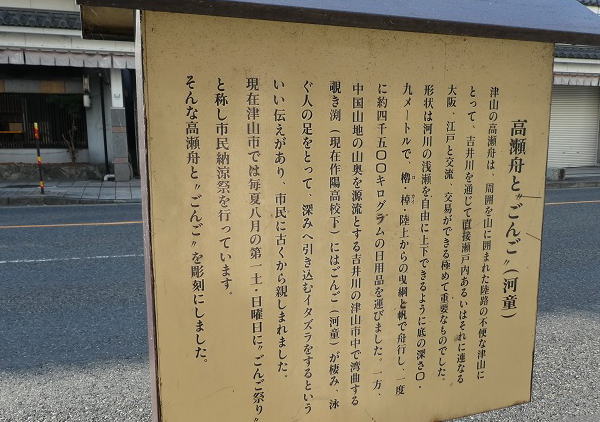 高瀬舟と〝ごんご〟(河童)
津山の高瀬舟は、周囲を山に囲まれた陸路の不便な津山に
とって、吉井川を通じて直接瀬戸内あるいはそれに連なる
大阪、江戸と交流、交易ができる極めて重要なものでした。
形状は河川の浅瀬を自由に上下できるように底の深さ〇・
九メートルで、櫓・棹、陸上からの曳綱と帆で舟行し、一度
に約四千五〇〇キログラムの日用品を運びました。一方、
中国山地の山奥を源流とする吉井川の津山市中で湾曲する
覗き渕(現在作陽高校下)にはごんご(河童)が棲み、泳
ぐ人の足をとって、深みへ引き込むイタズラをするという
いい伝えがあり、市民に古くから親しまれました。
現在津山市では毎夏八月の第一土・日曜日に〝ごんご祭り〟
と称し市民納涼祭を行っています。
そんな高瀬舟と〝ごんご〟を彫刻にしました。